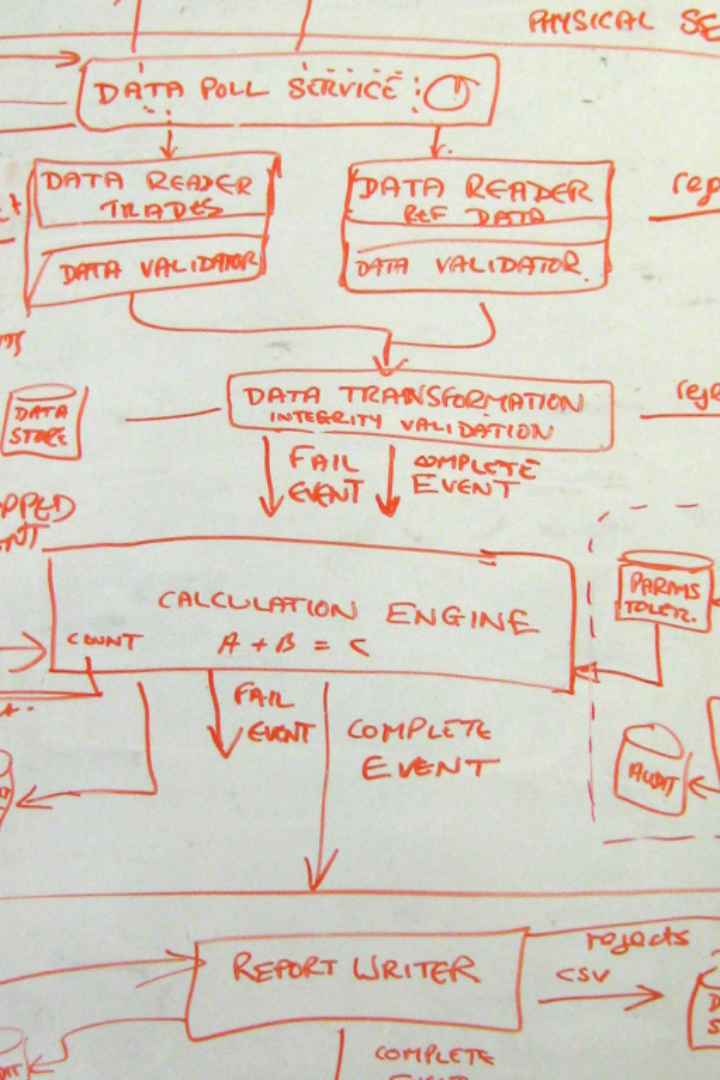 PHYSICAL SE
DATA POLL SERVICE
DATA READER
TRADES
DATA VALIDATOR
DATA READER
REF DATA
DATA VALIDATOR
DATA
STORE
DATA TRANSFORMATION
INTEGRITY VALIDATION
FAIL
EVENT
COMPLETE
EVENT
CALCULATION ENGINE
COUNT
A + B = C
PARAMS
TOLER.
FAIL
EVENT
COMPLETE
EVENT
AUDIT
REPORT WRITER
rejects
CSV
COMPLETE